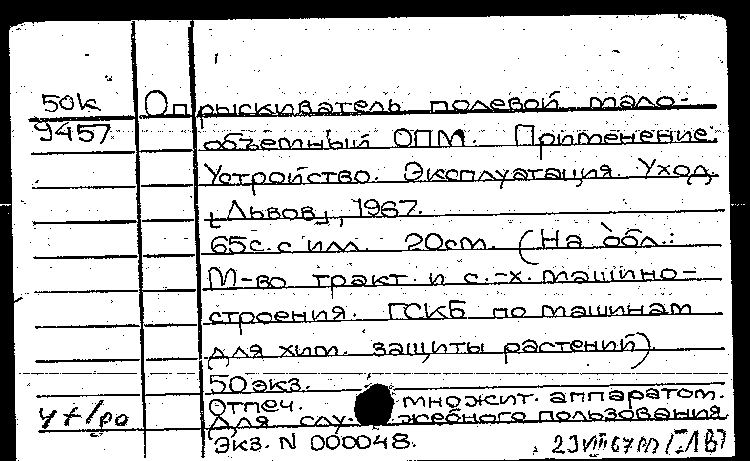 50к Опрыскиватель полевой мало-
9457 объемный ОПМ. Применение.
Устройство. Эксплуатация. Уход.
[Львов], 1967.
65с. с илл. 20см. (На обл.:
М-во тракт. и с.-х. машино-
строения. ГСКБ по машинам
для хим. защиты растений).
50экз.
Отпеч. множит. аппаратом.
Для служебного пользования
Экз. N 000048.